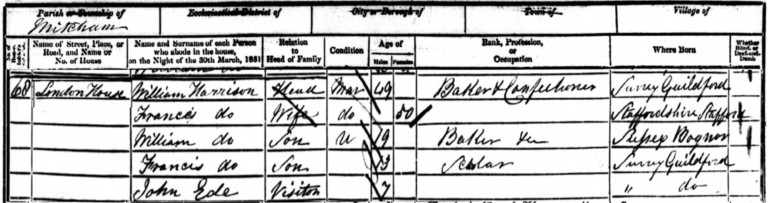 Parish or Township of Ecclesiastical District of City or Borough of Town of Village of
Mitcham
Name of Street, Place, or Road, and Name or No. of House Name and Surname of each Person who abode in the house, on the Night of the 30th March, 1851 Relation to Head of Family Condition Age of Males Females Rank, Profession, or Occupation Where Born Whether Blind, or Deaf-and-Dumb
68 London House William Harrison Head Mar 49 Baker & Confectioner Surrey Guildford
Francis do Wife do 50 Staffordshire Stafford
William do Son U 19 Baker Sussex Bognor
Francis do Son 13 Scholar Surrey Guildford
John Ede Visitor 7 " do